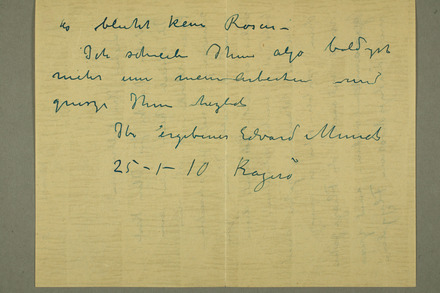 es blüht kein Rosen –
Ich schreibe Ihnen also baldigst
mehr von meinen Arbeiten und
grüsse Ihnen herzlich
Ihr ergebener Edvard Munch
25-1-10 Kragerö